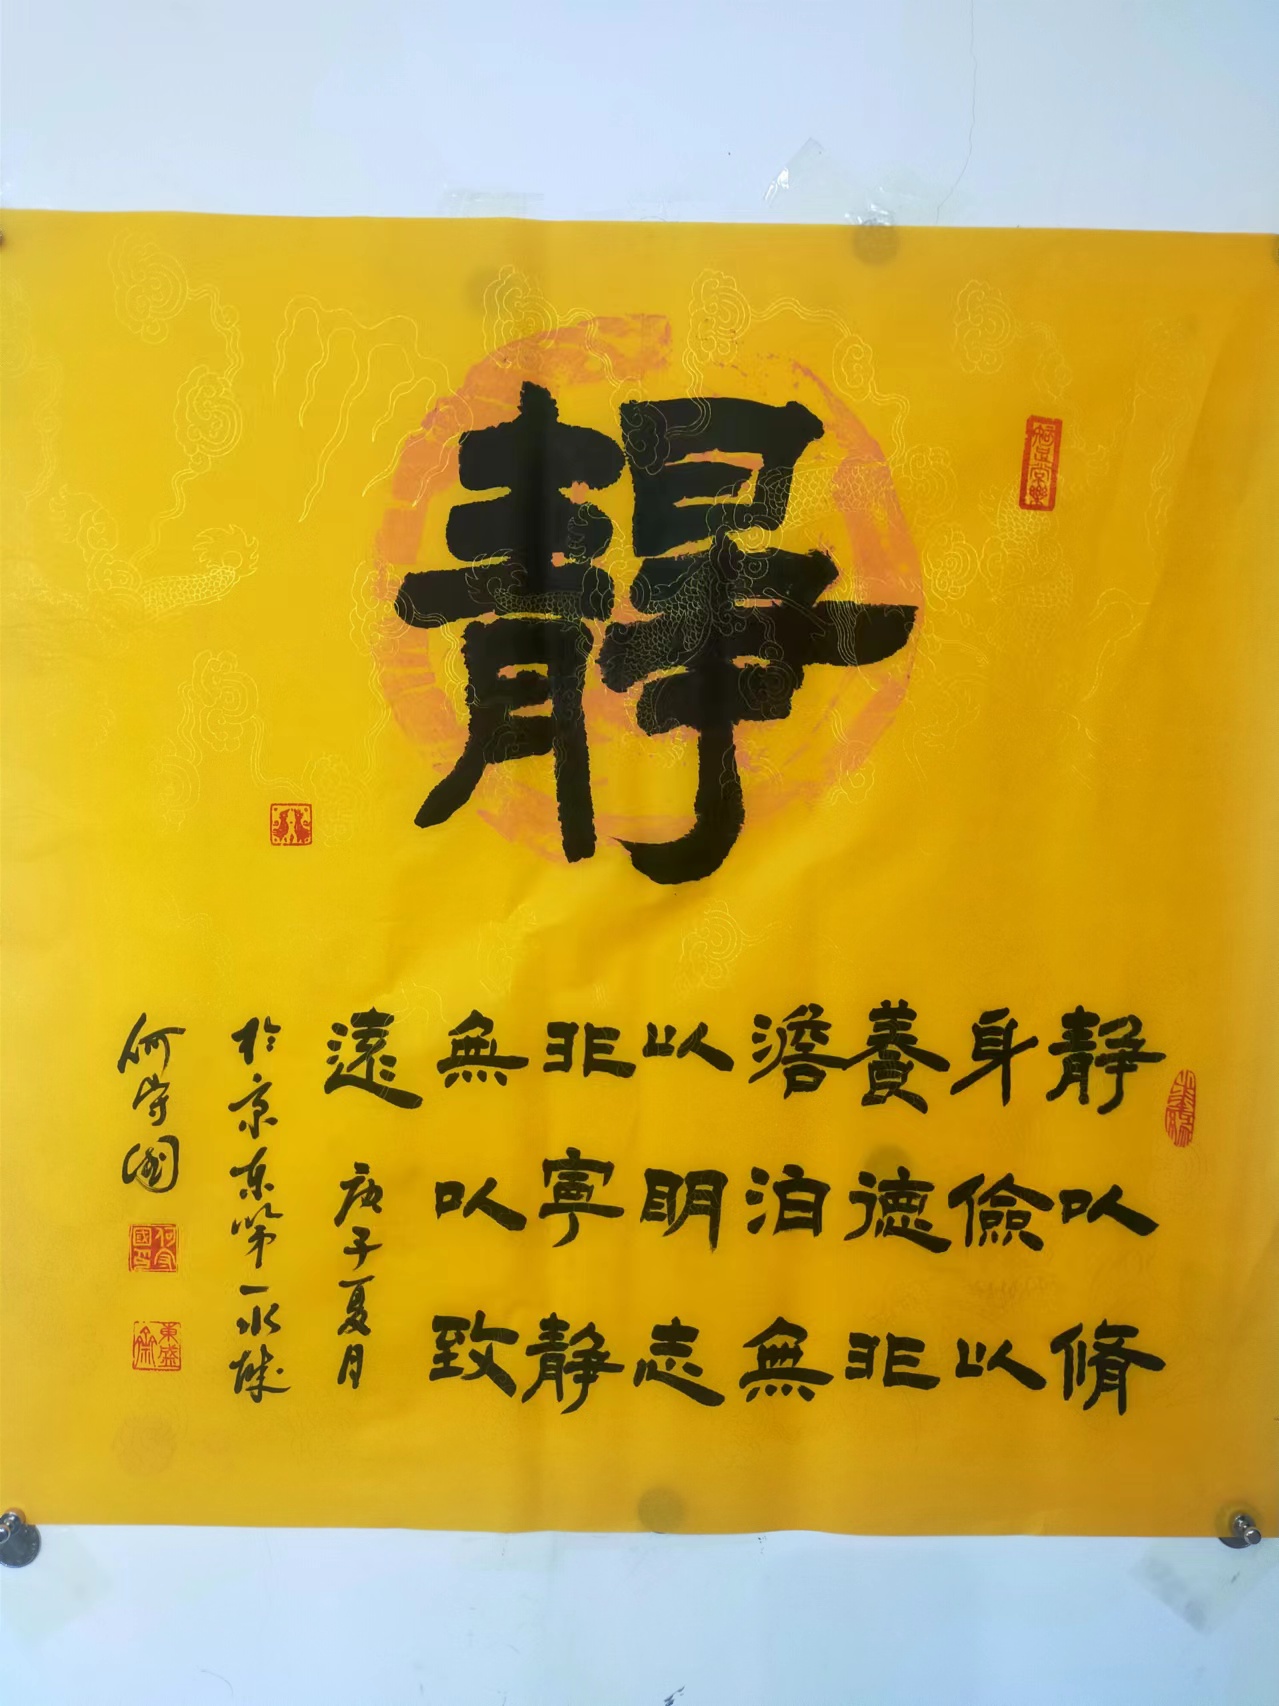 靜
靜以脩
身儉以
養德非
澹泊無
以明志
非寧靜
無以致
遠
庚子夏月
於京东第一水城
何守國
知足常樂